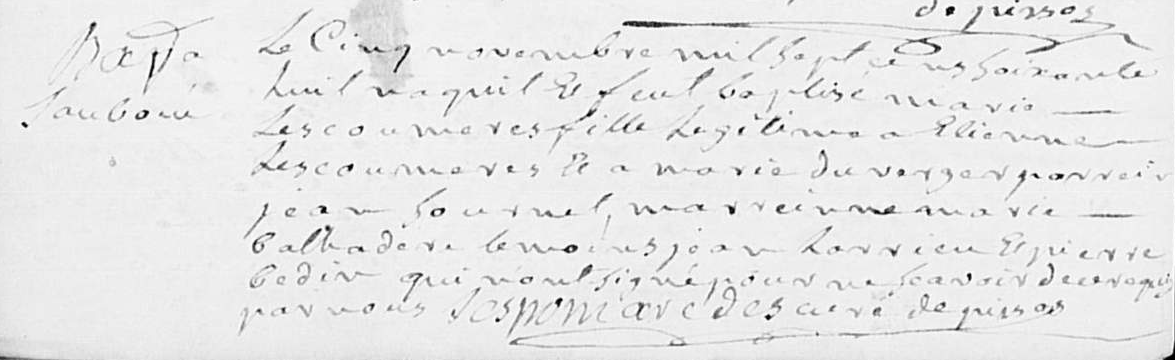 de pissos
Bapt
Le Cinq novembre mil sept cens soixante
huit naquit Et feut baptisé marie
Lescoumeres fille Legitime a Etienne
Lescoumeres Et a marie duverger parrein
jean hournet, marreinne marie
balhadere temoins jean Larrieu Et pierre
bedin qui n'ont signé pour ne scavoir de ce requis
par nous curé de pissos